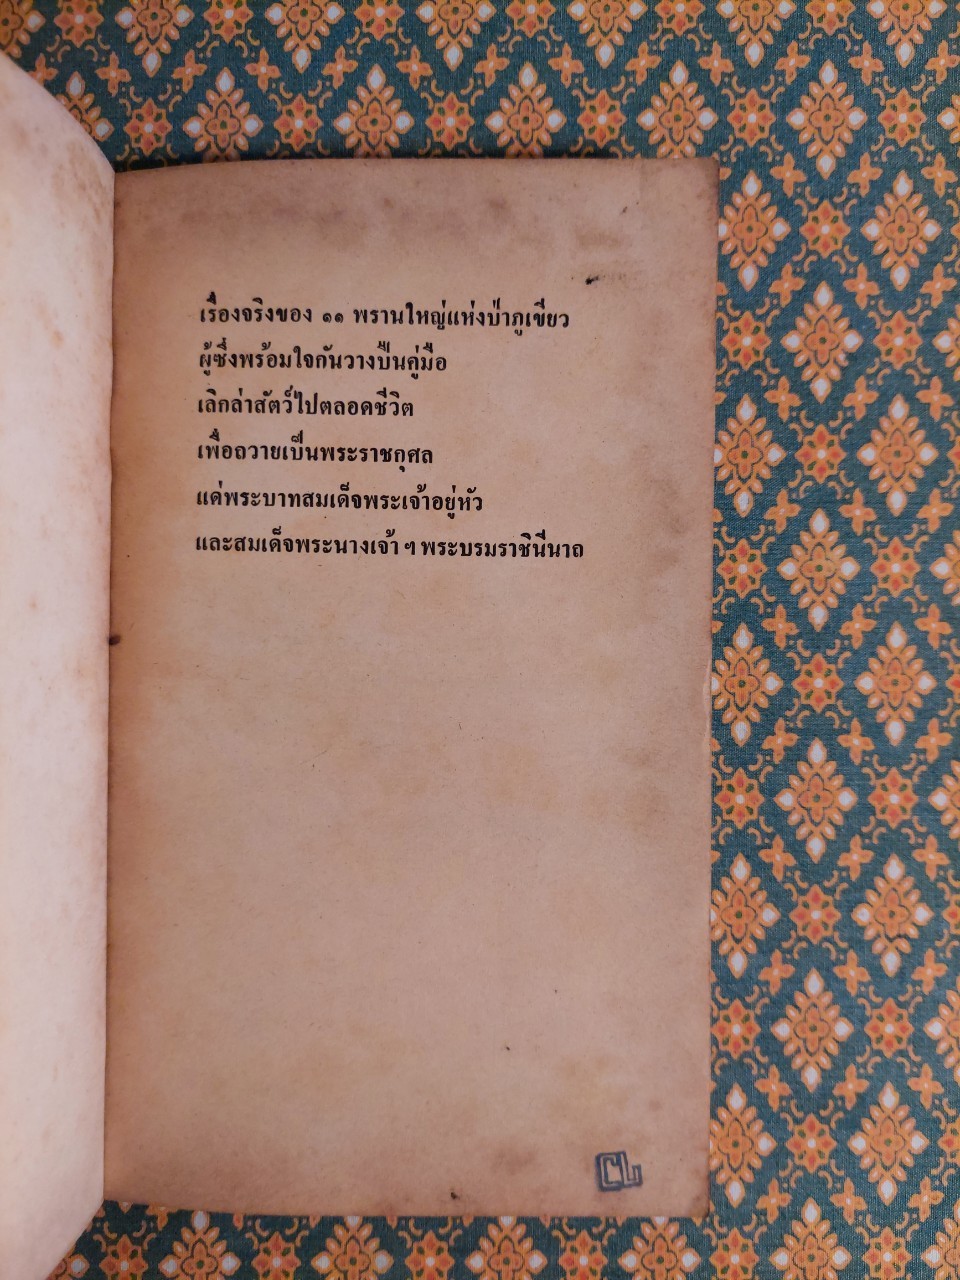 เรื่องจริงของ ๑๑ พรานใหญ่แห่งป่าภูเขียว
ผู้ซึ่งพร้อมใจกันวางปืนคู่มือ
เลิกล่าสัตว์ไปตลอดชีวิต
เพื่อถวายเป็นพระราชกุศล
แด่พระบาทสมเด็จพระเจ้าอยู่หัว
และสมเด็จพระนางเจ้า ฯ พระบรมราชินีนาถ
CL